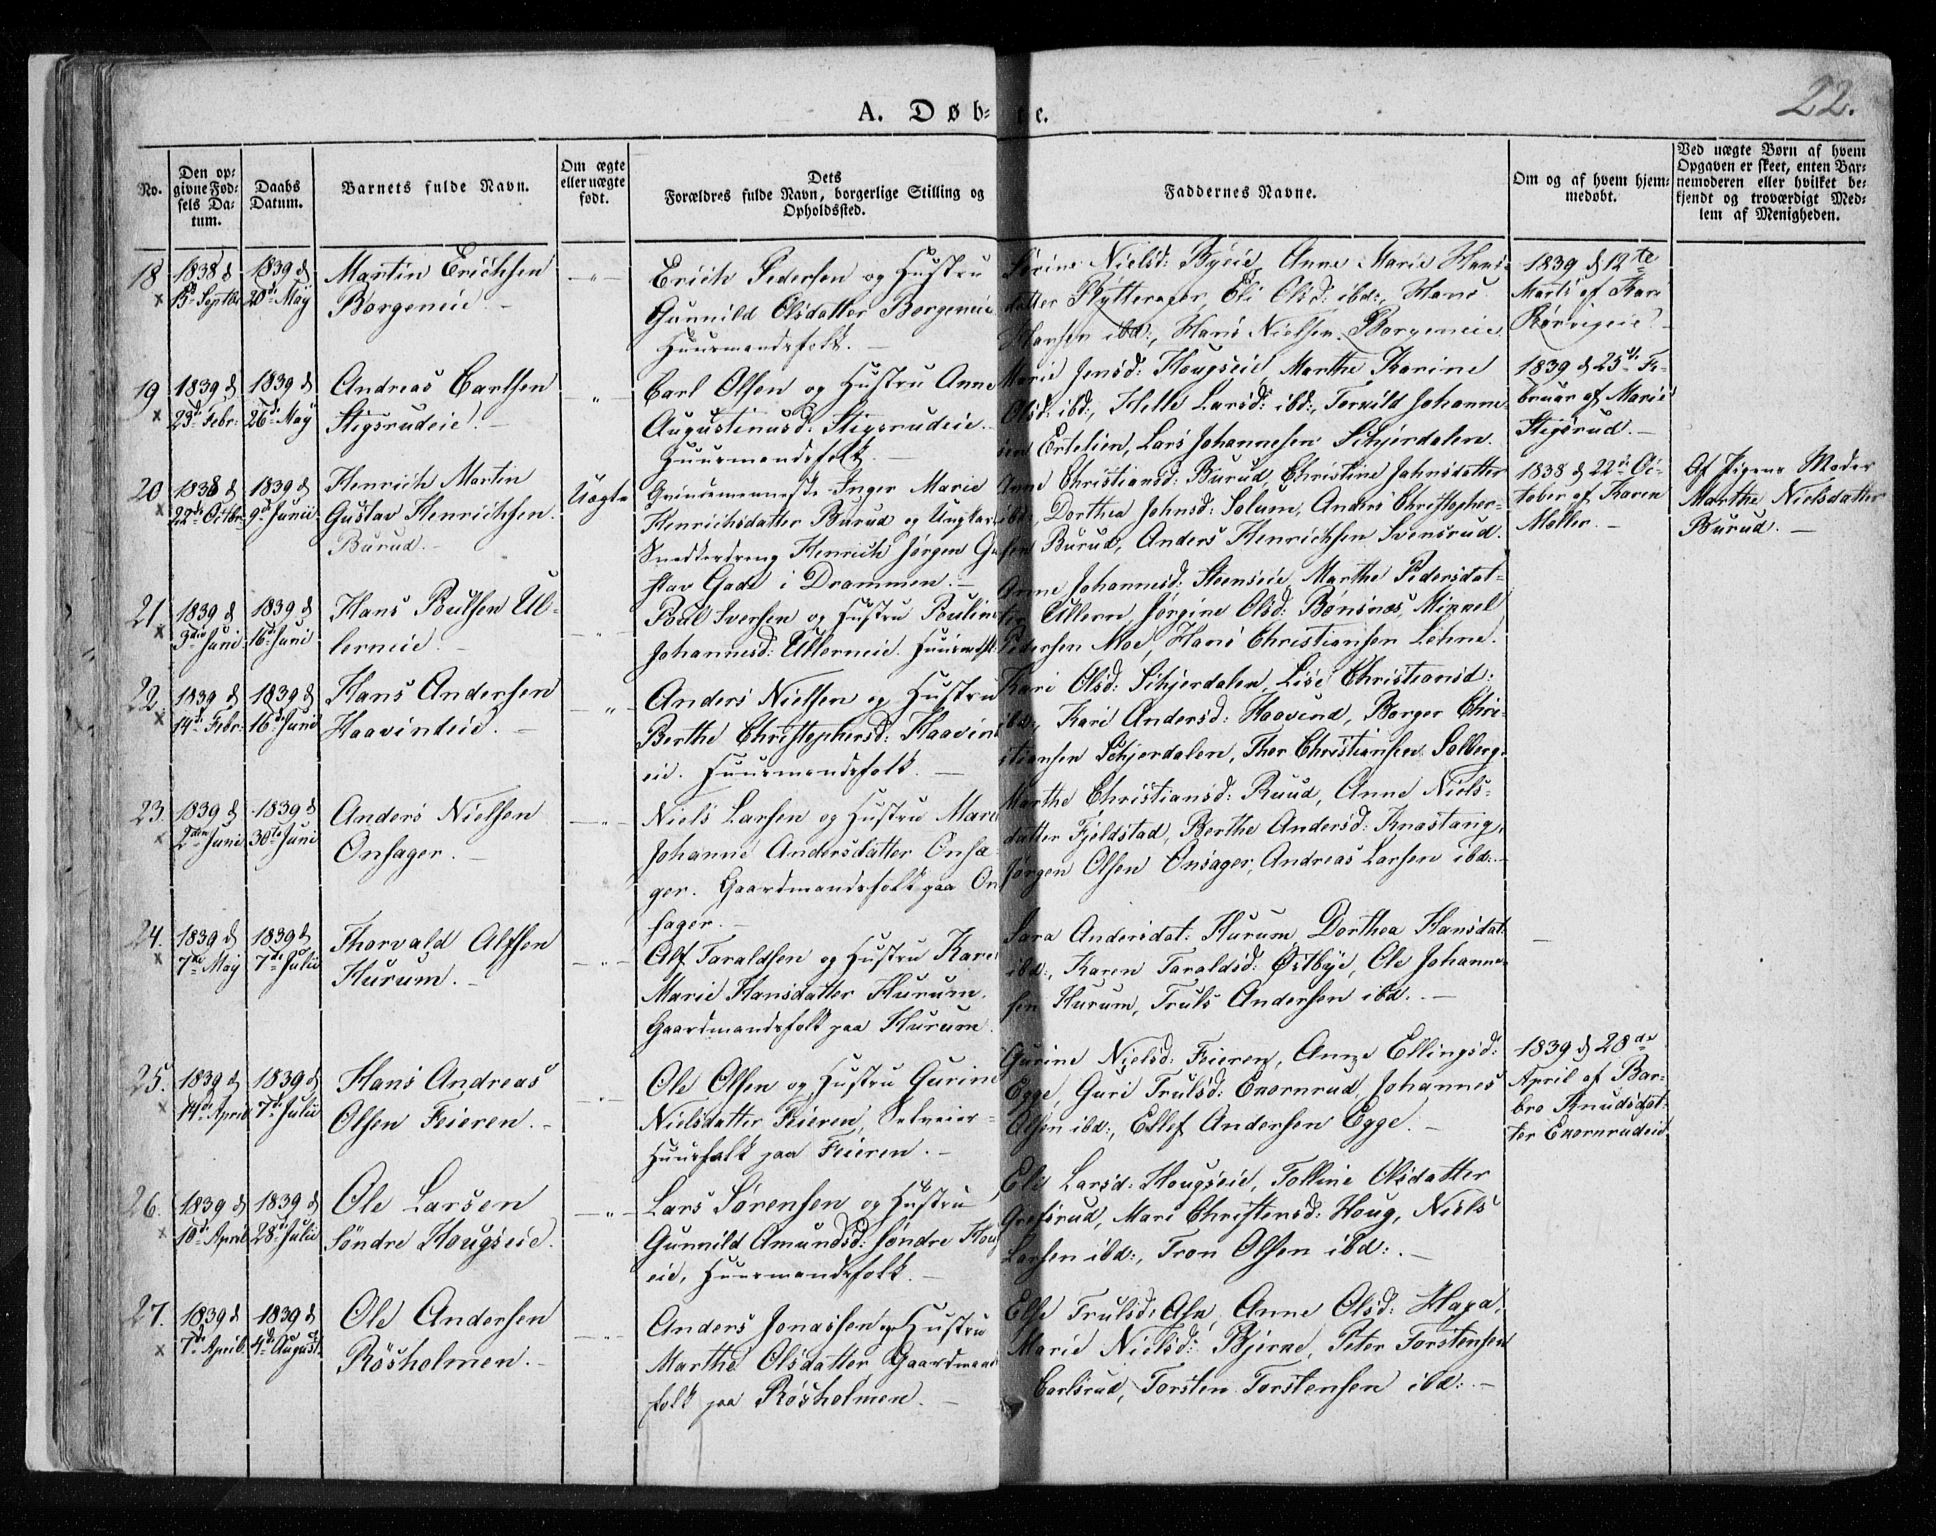 22.
A. Døb- te.
No.
Den op-
givne Fød-
sels Da-
tum.
Daabs
Datum.
Barnets fulde Navn.
Om ægte
eller uægte
født.
Dets
Forældres fulde Navn, borgerlige Stilling og
Opholdssted.
Faddernes Navne.
Om og af hvem hjem-
medøbt.
Ved uægte Børn af hvem
Opgaven er skeet, enten Bar-
nemoderen eller hvilket be-
kjendt og troværdigt Med-
lem af Menigheden.
18
x
1838 d
Septbr
1839 d
20de May
Martin Erichsen
Borgeneie. —
— " —
Erich Pedersen og Hustru
Gunnild Olsdatter Borgeneie
Huusmandsfolk. —
Sørine Nielsd: Byeie, Anne Marie Hans-
datter Skytterager, Eli Olsd: ibd:, Hans
Hansen ibd:, Hans Nielsen Borgeneie
1839 d 12te
Marts af Kari
Rørvigeie. —
19
x
1839 d
23d Febr:
1839 d
26d May
Andreas Carlsen
Stigsrudeie. —
"
Carl Olsen og Hustru Anne
Augustinusd: Stigsrudeie. —
Huusmandsfolk. —
Marie Jensd: Hougseie, Marthe Karine
Olsd: ibd:, Helle Larsd: ibd:, Torkild Johanne-
sen Ertelien, Lars Johannesen Schjerdalen.
1839 d 25de Fe-
bruar af Marie
Stigsrud. —
20
x
1838 d
22de Octbr
1839 d
9d Junii
Henrich Martin
Gustav Henrichsen
Burud. —
Uægte
Qvindemenneske Inger Marie
Henrichsdatter Burud og Ungkarl
Snedkerdreng Henrich Jørgen Gu-
stav Gade i Drammen. —
Anne Christiansd: Burud, Christine Johnsdatter
ibd:, Dorthea Johnsd: Solum, Anders Christopher-
sen Burud, Anders Henrichsen Svensrud.
1838 d 22de Oc-
tober af Karen
Møller. —
Af Pigens Moder
Marthe Nielsdatter
Burud. —
21.
x
1839 d
3die Juni
1839 d
16d Juni
Hans Poulsen Ul-
lerneie. —
— " —
Poul Iversen og Hustru Pouline
Johannesd: Ullerneie. Huusmdsf:
Anne Johannesd: Steenseie, Marthe Pedersdat-
ter Ullern, Jørgine Olsd: Bønsnæs, Mikkel
Pedersen Moe, Hans Christiansen Lehne.
22.
x
1839 d
14de Febr:
1839 d
16d Juni
Hans Andersen
Haavindeie. —
— " —
Anders Nielsen og Hustru
Berthe Christophersd: Haavind-
eie. Huusmandsfolk. —
Kari Olsd: Schjerdalen, Lise Christiansd:
ibd:, Kari Andersd: Haavind, Borger Chri-
stiansen Schjerdalen, Thor Christiansen Solberg.
23.
x
1839 d
2den Juni
1839 d
30te Juni
Anders Nielsen
Onsager. —
— " —
Niels Larsen og Hustru Maren
Johanne Andersdatter Onsa-
ger. Gaardmandsfolk paa On-
sager. —
Marthe Christiansd: Ruud, Anne Niels-
datter Fjeldstad, Berthe Andersd: Knæstang,
Jørgen Olsen Onsager, Andreas Larsen ibd: —
24.
x
1839 d
7de May
1839 d
7de Julii
Thorvald Alfsen
Hurum. —
— " —
Alf Taraldsen og Hustru Karen
Marie Hansdatter Hurum.
Gaardmandsfolk paa Hurum.
Sara Andersdat: Hurum, Dorthea Hansdat:
ibd:, Karen Taraldsd: Østbye, Ole Johanne-
sen Hurum, Truls Andersen ibd. —
—
25.
x
1839 d
14de April
1839 d
7de Julii
Hans Andreas
Olsen Feieren. —
— " —
Ole Olsen og Hustru Gurine
Nielsdatter Feieren, Selveier-
Huusfolk paa Feieren. —
Gurine Nielsd: Feieren, Anne Ellingsd:
Egge, Guri Trulsd: Exornrud, Johannes
Olsen ibd:, Ellef Andersen Egge. —
1839 d 28de
April af Bar-
bro Knudsdat-
ter Exornrudeie
26.
x
1839 d
10de April
1839 d
28de Julii
Ole Larsen
Søndre Hougseie.
— " —
Lars Sørensen og Hustru
Gunnild Amundsd: Søndre Houg-
eie, Huusmandsfolk. —
Eli Larsd: Hougseie, Tolline Olsdatter
Grefsrud, Mari Christensd: Houg, Niels
Larsen ibd:, Tron Olsen ibd:. —
27.
x
1839 d
7de April
1839 d
4de August
Ole Andersen
Røsholmen. —
— " —
Anders Jonassen og Hustru
Marthe Olsdatter Gaardmands-
folk paa Røsholmen. —
Else Trulsd: Asn, Anne Olsd: Haga,
Marie Nielsd: Bjerne, Peter Torstensen
Carlsrud, Torsten Torstensen ibd: —